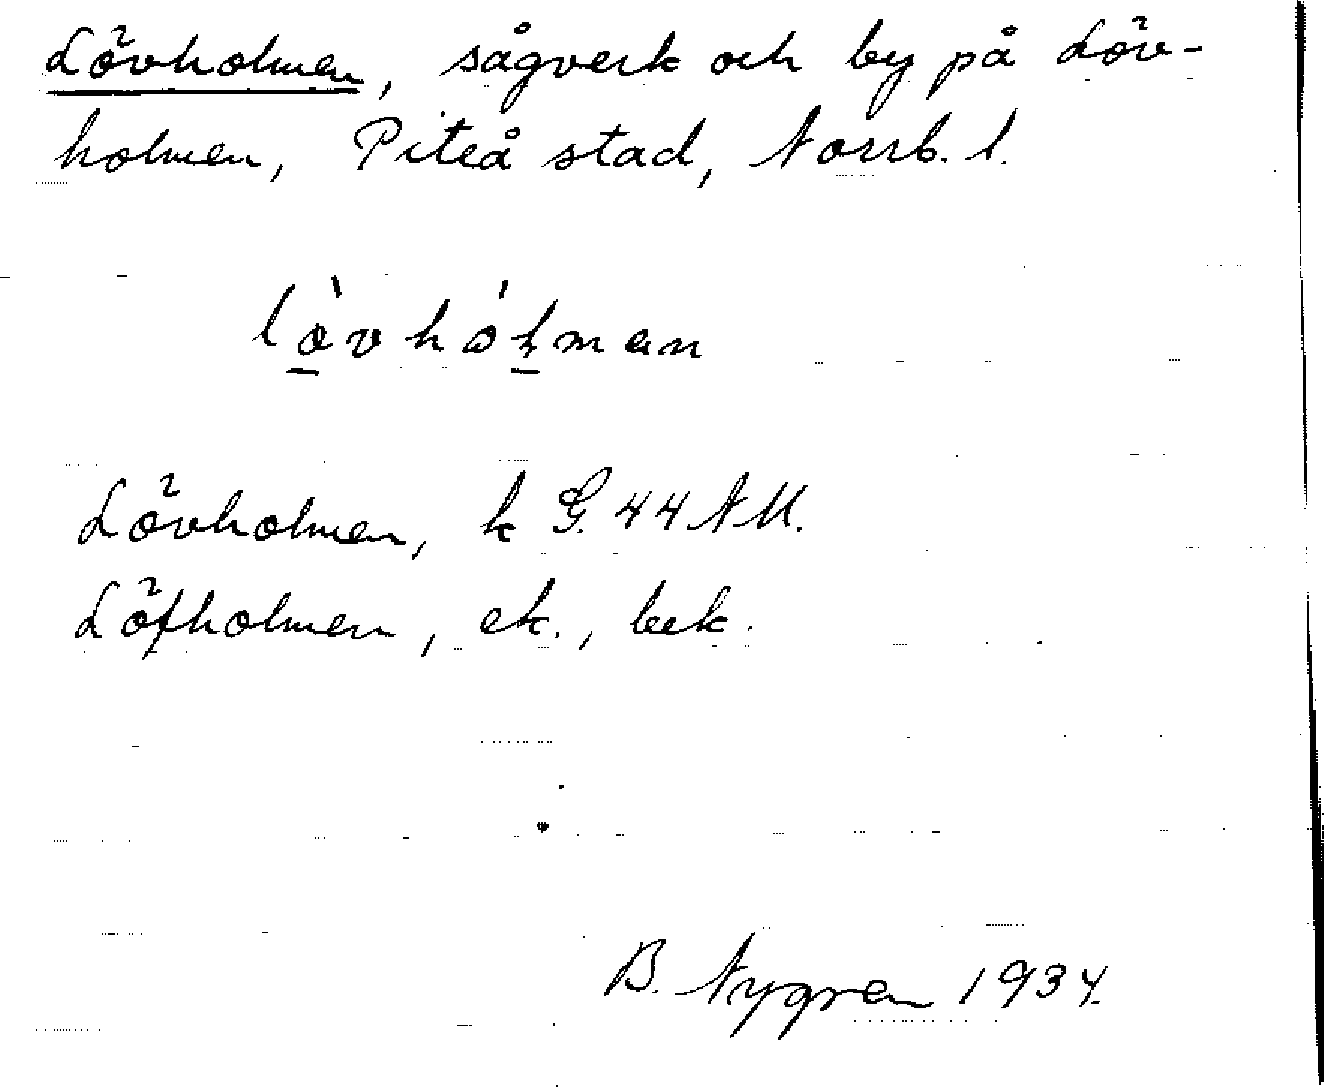 Lövholmen, sågverk och by på Löv-
holmen, Piteå stad, Norrb. l.
lòvhólman
Lövholmen, k G. 44 NU.
Löfholmen, ek., bek.
B. Nygren 1934.